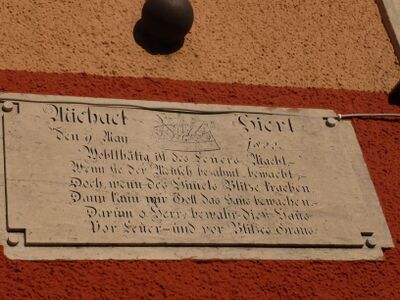 Michael Hierl
Den 9 May 18
Wohlthätig ist des Feuers Macht
Wenn sie der Mensch bezähmt, bewacht,
Doch, wenn des Himels Blitze krachen
Dann kann nur Gott das Haus bewachen.
Darum o Herr, bewahr dies Haus
Vor Feuer- und vor Blitzes Graus.